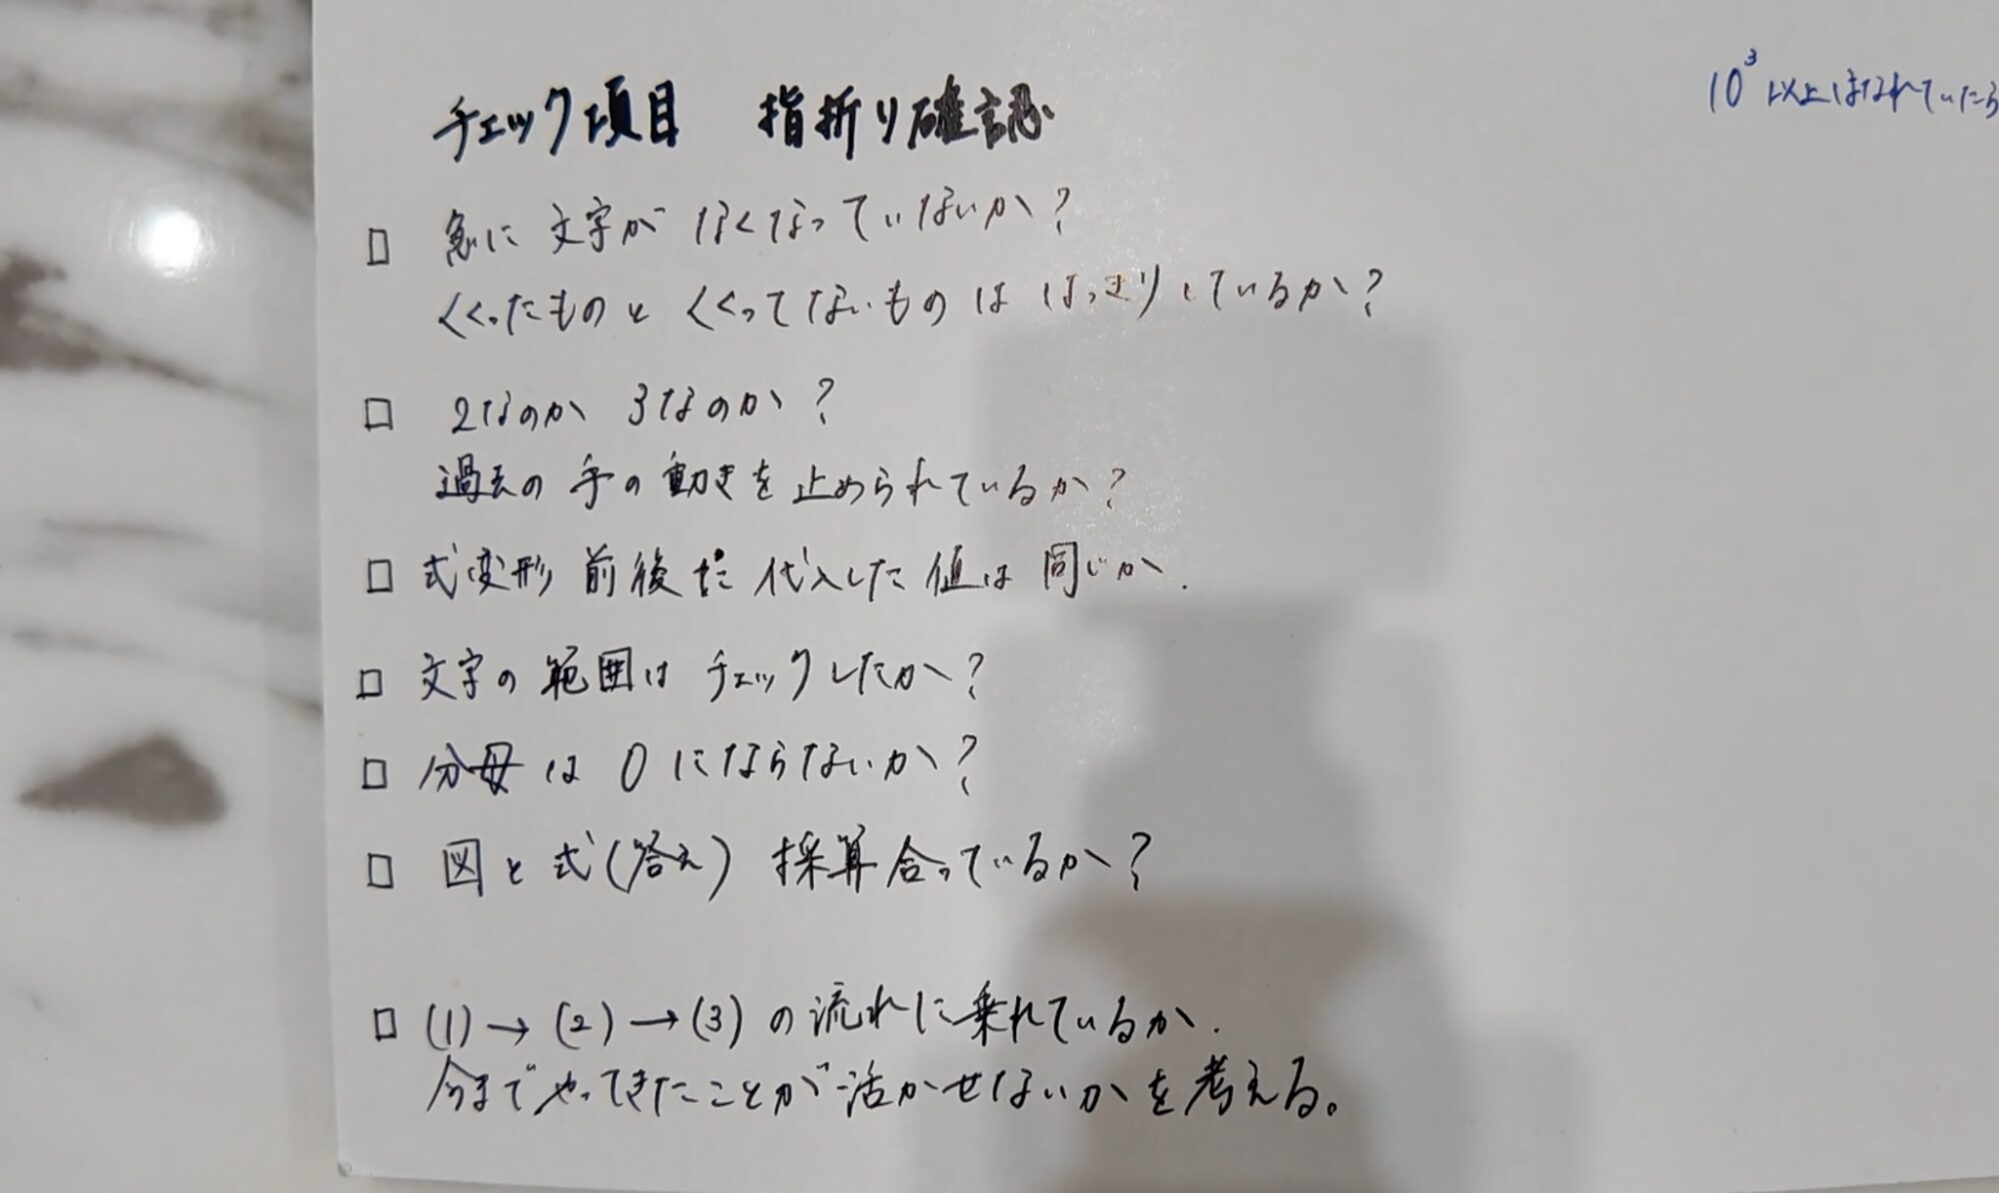 チェック項目 指折り確認
10³ 以上はなれていたら
□ 急に文字がなくなっていないか?
くくったものとくくってないものははっきりしているか?
□ 2なのか 3なのか?
過去の手の動きを止められているか?
□ 式変形 前後で代入した値は同じか.
□ 文字の範囲はチェックしたか?
□ 分母は0にならないか?
□ 図と式(答え) 採算合っているか?
□ (1)→(2)→(3)の流れに乗れているか.
今までやってきたことが活かせないかを考える。